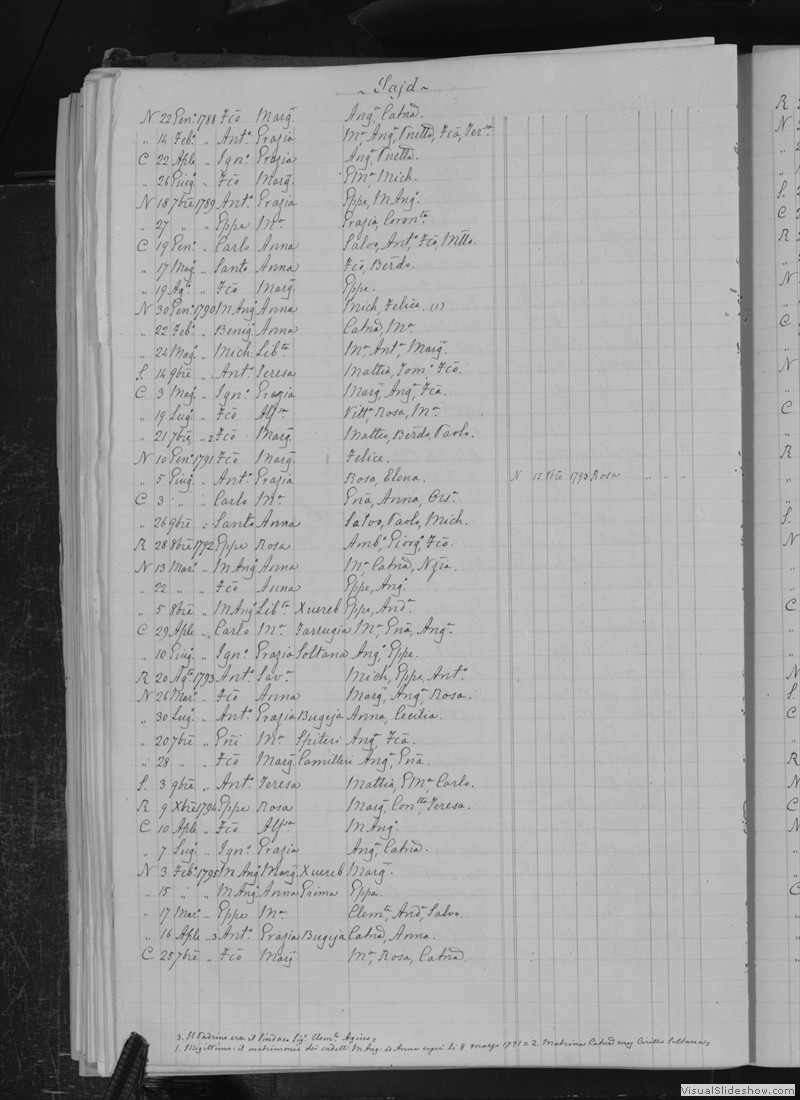 ~ Sajd ~
N 22 Genº 1788 Fcõ Margª Angª, Catnã.
„ 14 Febº „ Antº Grazia Mª, Angª, Pnetta, Fcã, Terª
C 22 Aple „ Ignº Grazia Angª, Pnetta.
„ 26 Giugº „ Fcõ Margª. GMª, Mich.
N 18 7bre 1789 Antº Grazia Gppe, M Angº.
„ 27 „ „ Gppe Mª Grazia, Coronta.
C 19 Genº „ Carlo Anna Salvo, Antº, Fcõ,
„ 17 Magº „ Santo Anna Fcõ, Berdo.
„ 19 Agto „ Fcõ Margª. Gppe.
N 30 Genº 1790 M Angº Anna Mich, Felice. (1)
„ 22 Febº „ Benigº Anna Catnã, Mª.
„ 24 Magº „ Mich. Libta Mª, Antª, Margª.
S. 14 9bre „ Antº Teresa Mattia, Tomº, Fcõ.
C 3 Magº „ Ignº Grazia Margª, Angª, Fcã.
„ 19 Lugº „ Fcõ Alfsa Vittª, Rosa, Mª.
„ 21 7bre „ 2 Fcõ Margª Matteo, Berdo, Paolo.
N 10 Genº 1791 Fcõ Margª Felice.
„ 5 Giugº „ Antº Grazia Rosa, Elena. N 15 8bre 1793 Rosa
C 3 „ „ Carlo Mª Gnã, Anna, Orsª.
„ 26 9bre „ Santo Anna Salvo, Paolo, Mich.
R 28 8bre 1792 Gppe Rosa Ambº, Giorgº, Fcõ.
N 13 Marº „ M Angº Anna Mª, Catnã, Nzia.
„ 22 „ „ Fcõ Anna Gppe, Angª.
„ 5 8bre „ M Angº Libta Xuereb Gppe, Andª.
C 29 Aple „ Carlo Mª Farrugia Mª, Gnã, Angª.
„ 10 Giugº „ Ignº Grazia Soltana Angº, Gppe.
R 20 Agto 1793 Antº Savª Mich, Gppe, Antº.
N 26 Marº „ Fcõ Anna Margª, Angª, Rosa.
„ 30 Lugº „ Antº Grazia Bugeja Anna, Cecilia.
„ 20 7bre „ Gñi Mª Spiteri Angª, Fcã.
„ 28 „ „ Fcõ Margª Camilleri Angª, Gnã.
S. 3 9bre „ Antº Teresa Mattia, GMª, Carlo.
R 9 Xbre 1794 Gppe Rosa Margª, Contta, Teresa.
C 10 Aple „ Fcõ Alfsa M Angº.
„ 7 Lugº „ Ignº Grazia Angª, Catnã.
N 3 Febº 1795 M Angº Margª Xuereb Margª.
„ 15 „ „ M Angº Anna Grima Gppa.
„ 17 Marº „ Gppe Mª Clemte, Andª, Salvo.
„ 16 Aple „ 3 Antº Grazia Bugeja Catnã, Anna.
C 25 7bre „ Fcõ Margª Mª, Rosa, Catnã.
3. Il Padrino era il Sindaco Sigº Clemte Agius,
1. Illigittimo: il matrimonio dei sudetti M Angº ed Anna seguì li 8 marzo 1791 = 2. Matrina Catnã mog Cirillo Soltana,
R
N
„
„
S.
C
R
„
N
„
C
„
N
„
C
„
R
„
„
S.
N
„
„
C
„
„
N
S.
C
„
R
N
C
N
„
„
C
„
„
VisualSlideshow.com